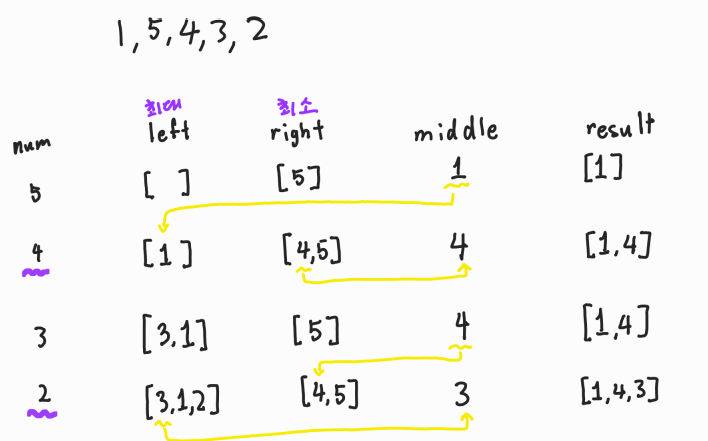 1, 5, 4, 3, 2
최대 최소
num left right middle result
5 [ ] [5] 1 [1]
4 [1] [4,5] 4 [1,4]
3 [3,1] [5] 4 [1,4]
2 [3,1,2] [4,5] 3 [1,4,3]